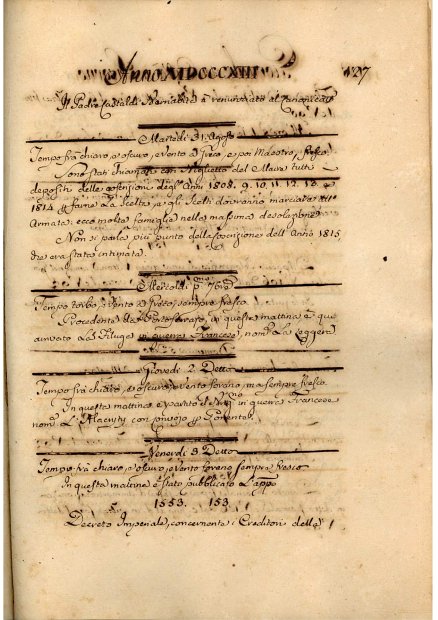 Anno MDCCCXIII 427
Il Padre Castaldi Barnabita à renunziato al Canonicato
Martedi 31. Agosto
Tempo frà chiaro, e oscuro, e vento à Greco, e poi Maestro, fresco.
Sono stati chiamati con Biglietto del Maire tutti
depositi delle coscrizioni degl'Anni 1808. 9. 10. 11. 12. 13. e
1814. p farne la scelta, e gli scelti dovranno marciare all'
Armata; ecco molte famiglie nella massima desolazione.
Non si parla più punto della coscrizione dell'Anno 1815,
che era stata intimata.
Mercoldi p.mo 7bre
Tempo torbo, e vento à Greco, sempre fresco.
Procedente da Portoferrajo, in questa mattina è quà
arrivato La Filuga in guerra Francese, nom.ta La Leggera
Giovedi 2. Detto
Tempo frà chiaro, e oscuro, e vento forano, ma sempre fresco
In questa mattina è partito il in guerra Francese
nom.to L'Alacrity con p
Venerdi 3 Detto
Tempo frà chiaro, e oscuro, e vento forano sempre fresco
In questa mattina è stato pubblicato L'app.o
1553. 153
Decreto Imperiale, concernente i Creditori della